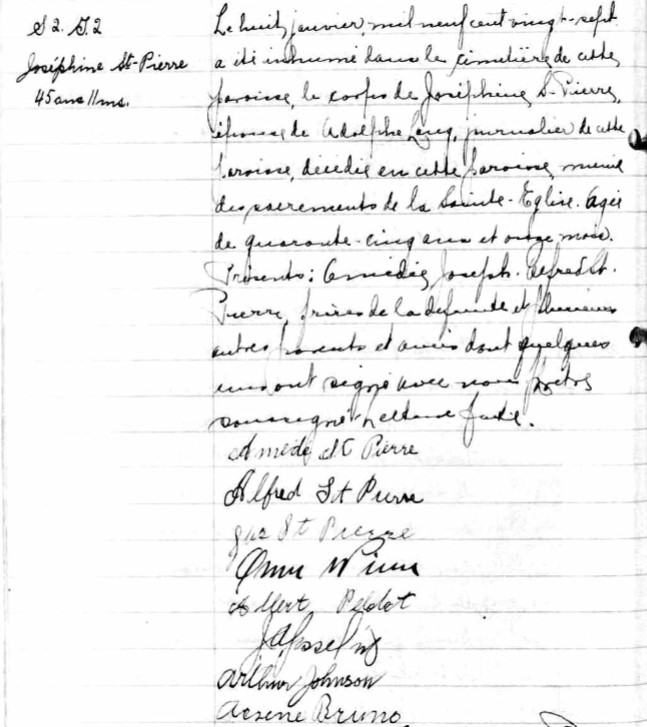 S 2. J. 2
Joséphine St-Pierre
45 ans 11 ms.
Le huit janvier, mil neuf cent vingt-sept
a été inhumé dans le cimetière de cette
paroisse, le corps de Joséphine St-Pierre,
épouse de Adolphe journalier de cette
paroisse, décédée en cette paroisse, munie
des sacrements de la Sainte-Eglise. Agée
de quarante-cinq ans et onze mois.
Présents: Amédée, Joseph. Alfred St.
Pierre, frères de la défunte et plusieurs
autres parents et amis dont quelques
uns ont signé avec nous prêtre
soussigné lecture faite.
Amédé St Pierre
Alfred St Pierre
St Pierre
Albert
Arthur Johnson
Arsene Bruno